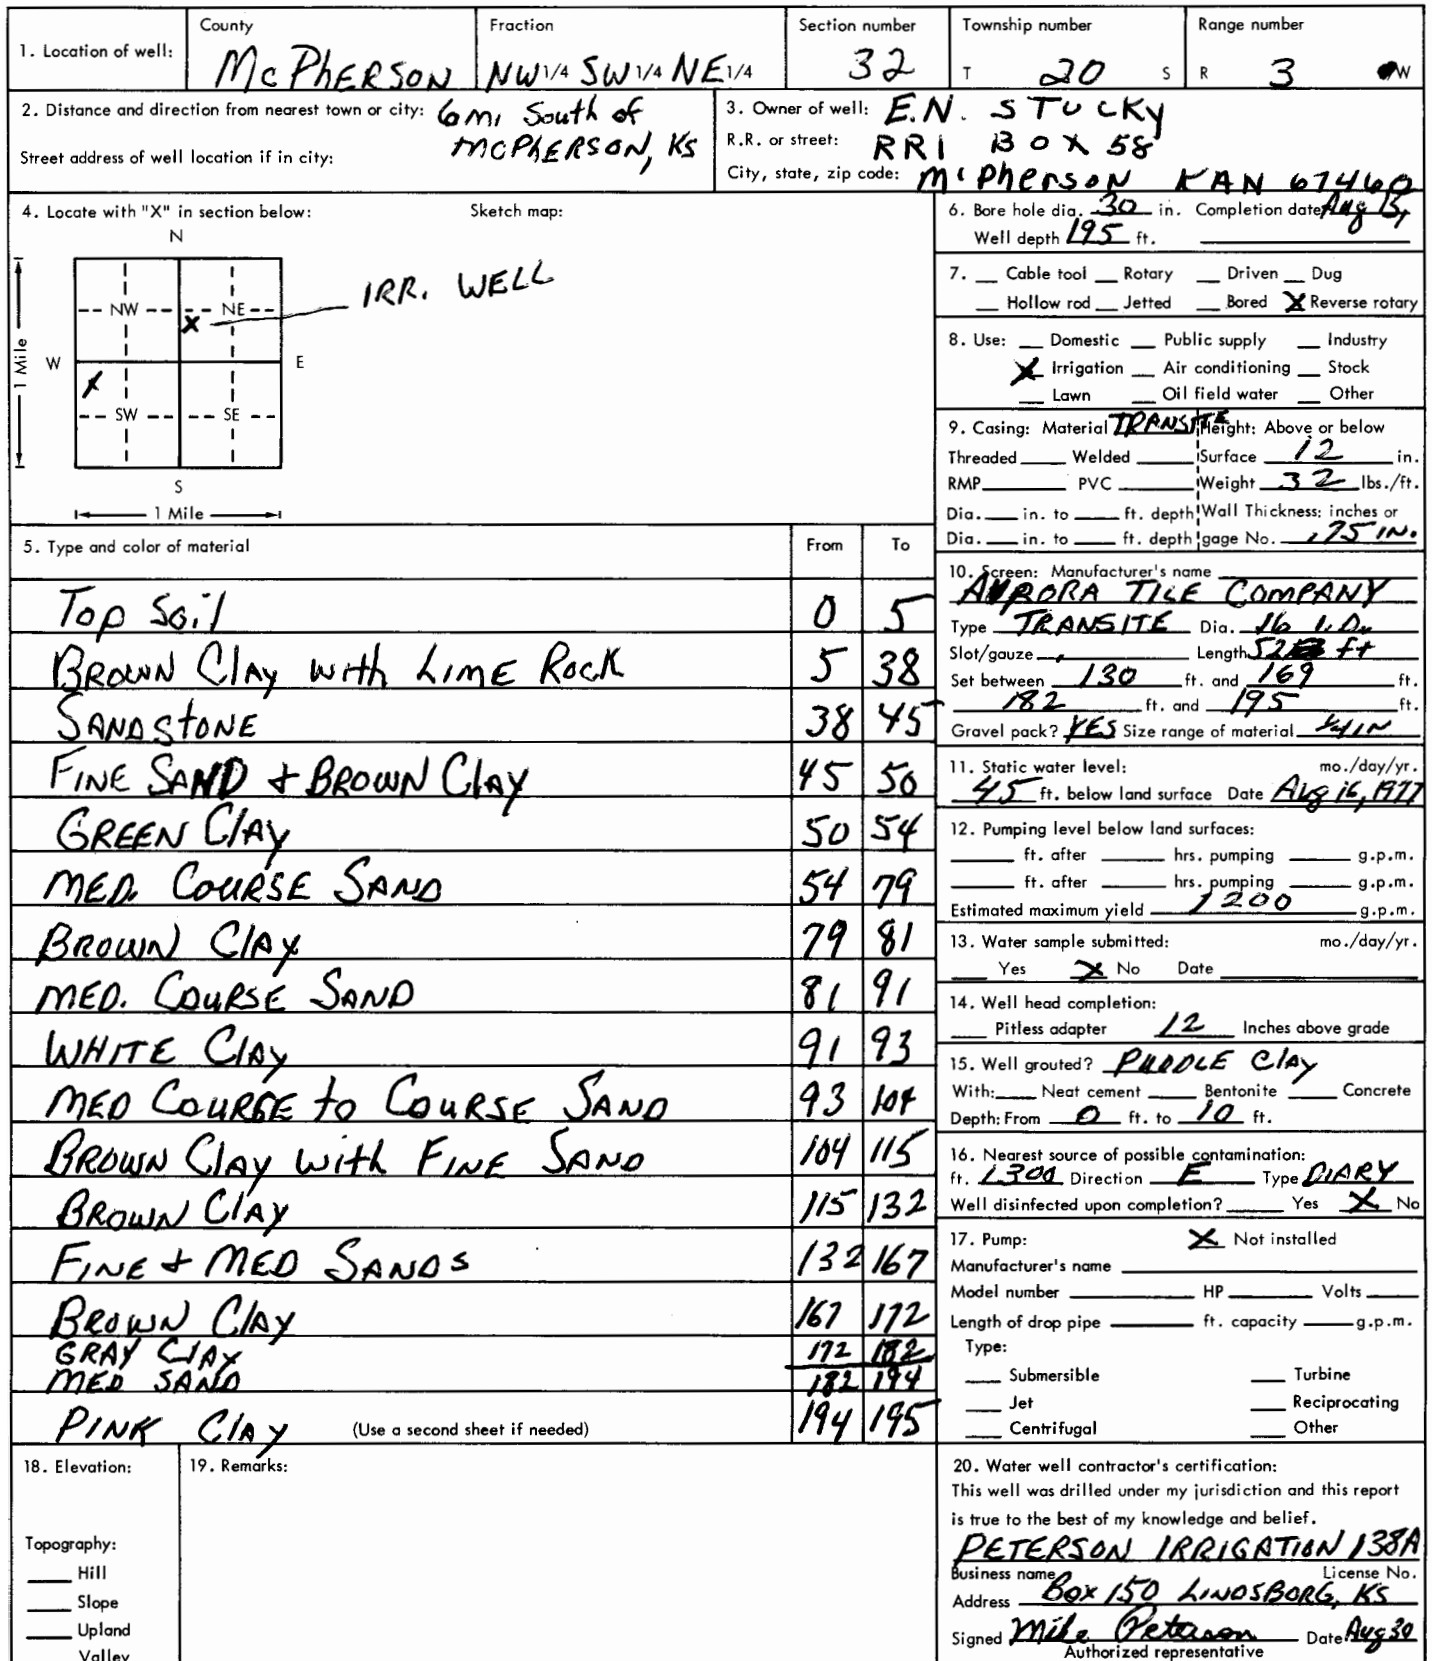 County Fraction Section number Township number Range number
1. Location of well: McPHERSON NW 1/4 SW 1/4 NE 1/4 32 T 20 S R 3 W
2. Distance and direction from nearest town or city: 6 mi South of
McPHERSON, KS
Street address of well location if in city:
3. Owner of well: E.N. STUCKY
R.R. or street: RR1 BOX 58
City, state, zip code: McPherson KAN 67460
4. Locate with "X" in section below: Sketch map:
N
NW NE
W E
SW SE
S
1 Mile
1 Mile
X
X
IRR. WELL
6. Bore hole dia. 30 in. Completion date Aug 13,
Well depth 195 ft.
7. __ Cable tool __ Rotary __ Driven __ Dug
__ Hollow rod __ Jetted __ Bored X Reverse rotary
8. Use: __ Domestic __ Public supply __ Industry
X Irrigation __ Air conditioning __ Stock
__ Lawn __ Oil field water __ Other
9. Casing: Material TRANSITE Height: Above or below
Threaded __ Welded __ Surface 12 in.
RMP __ PVC __ Weight 32 lbs./ft.
Dia. __ in. to __ ft. depth Wall Thickness: inches or
Dia. __ in. to __ ft. depth gage No. .75 IN.
5. Type and color of material From To
Top Soil 0 5
BROWN Clay with LIME ROCK 5 38
SANDSTONE 38 45
FINE SAND + BROWN Clay 45 50
GREEN Clay 50 54
MED. COURSE SAND 54 79
BROWN Clay 79 81
MED. COURSE SAND 81 91
WHITE Clay 91 93
MED COURSE to COURSE SAND 93 104
BROWN Clay with FINE SAND 104 115
BROWN Clay 115 132
FINE + MED SANDS 132 167
BROWN Clay 167 172
GRAY Clay 172 182
MED SAND 182 194
PINK Clay (Use a second sheet if needed) 194 195
10. Screen: Manufacturer's name
AURORA TILE COMPANY
Type TRANSITE Dia. 16 I.D.
Slot/gauze __ Length 52 ft
Set between 130 ft. and 169 ft.
182 ft. and 195 ft.
Gravel pack? YES Size range of material 1/4 IN
11. Static water level: mo./day/yr.
45 ft. below land surface Date Aug 16, 1977
12. Pumping level below land surfaces:
__ ft. after __ hrs. pumping __ g.p.m.
__ ft. after __ hrs. pumping __ g.p.m.
Estimated maximum yield 1200 g.p.m.
13. Water sample submitted: mo./day/yr.
__ Yes X No Date
14. Well head completion:
__ Pitless adapter 12 Inches above grade
15. Well grouted? PUDDLE Clay
With: __ Neat cement __ Bentonite __ Concrete
Depth: From 0 ft. to 10 ft.
16. Nearest source of possible contamination:
ft. 1300 Direction E Type DIARY
Well disinfected upon completion? __ Yes X No
17. Pump: X Not installed
Manufacturer's name
Model number __ HP __ Volts __
Length of drop pipe __ ft. capacity __ g.p.m.
Type:
__ Submersible __ Turbine
__ Jet __ Reciprocating
__ Centrifugal __ Other
18. Elevation: 19. Remarks:
Topography:
__ Hill
__ Slope
__ Upland
Valley
20. Water well contractor's certification:
This well was drilled under my jurisdiction and this report
is true to the best of my knowledge and belief.
PETERSON IRRIGATION 138A
Business name License No.
Address Box 150 LINDSBORG, KS
Signed Mike Peterson Date Aug 30
Authorized representative